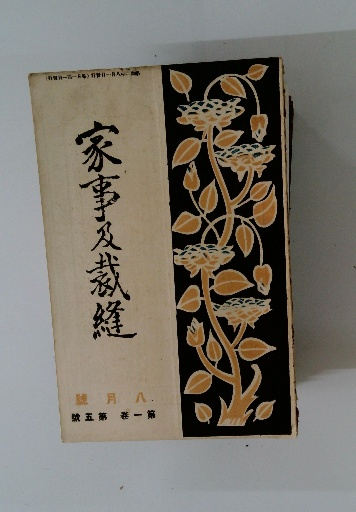 家事及裁縫
號月八
號五第 卷一第